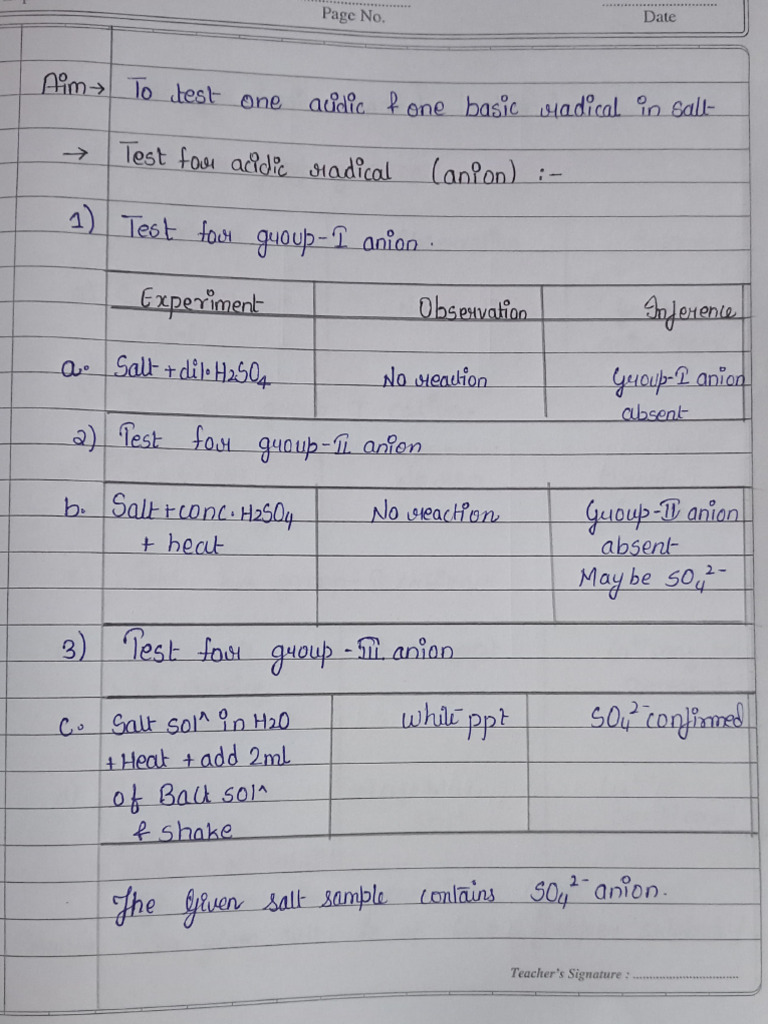 Page No.
Date
Aim → To test one acidic & one basic radical in salt
→ Test for acidic radical (anion) :-
1) Test for group-I anion.
Experiment Observation Inference
a. Salt + dil. H2SO4 No reaction Group-I anion
absent
2) Test for group-II anion
b. Salt + conc. H2SO4 No reaction Group-II anion
+ heat absent
Maybe SO4²⁻
3) Test for group-III anion
c. Salt sol^ in H2O White ppt SO4²⁻ confirmed
+ Heat + add 2ml
of Bacl sol^
& shake
The Given salt sample contains SO4²⁻ anion.
Teacher's Signature :